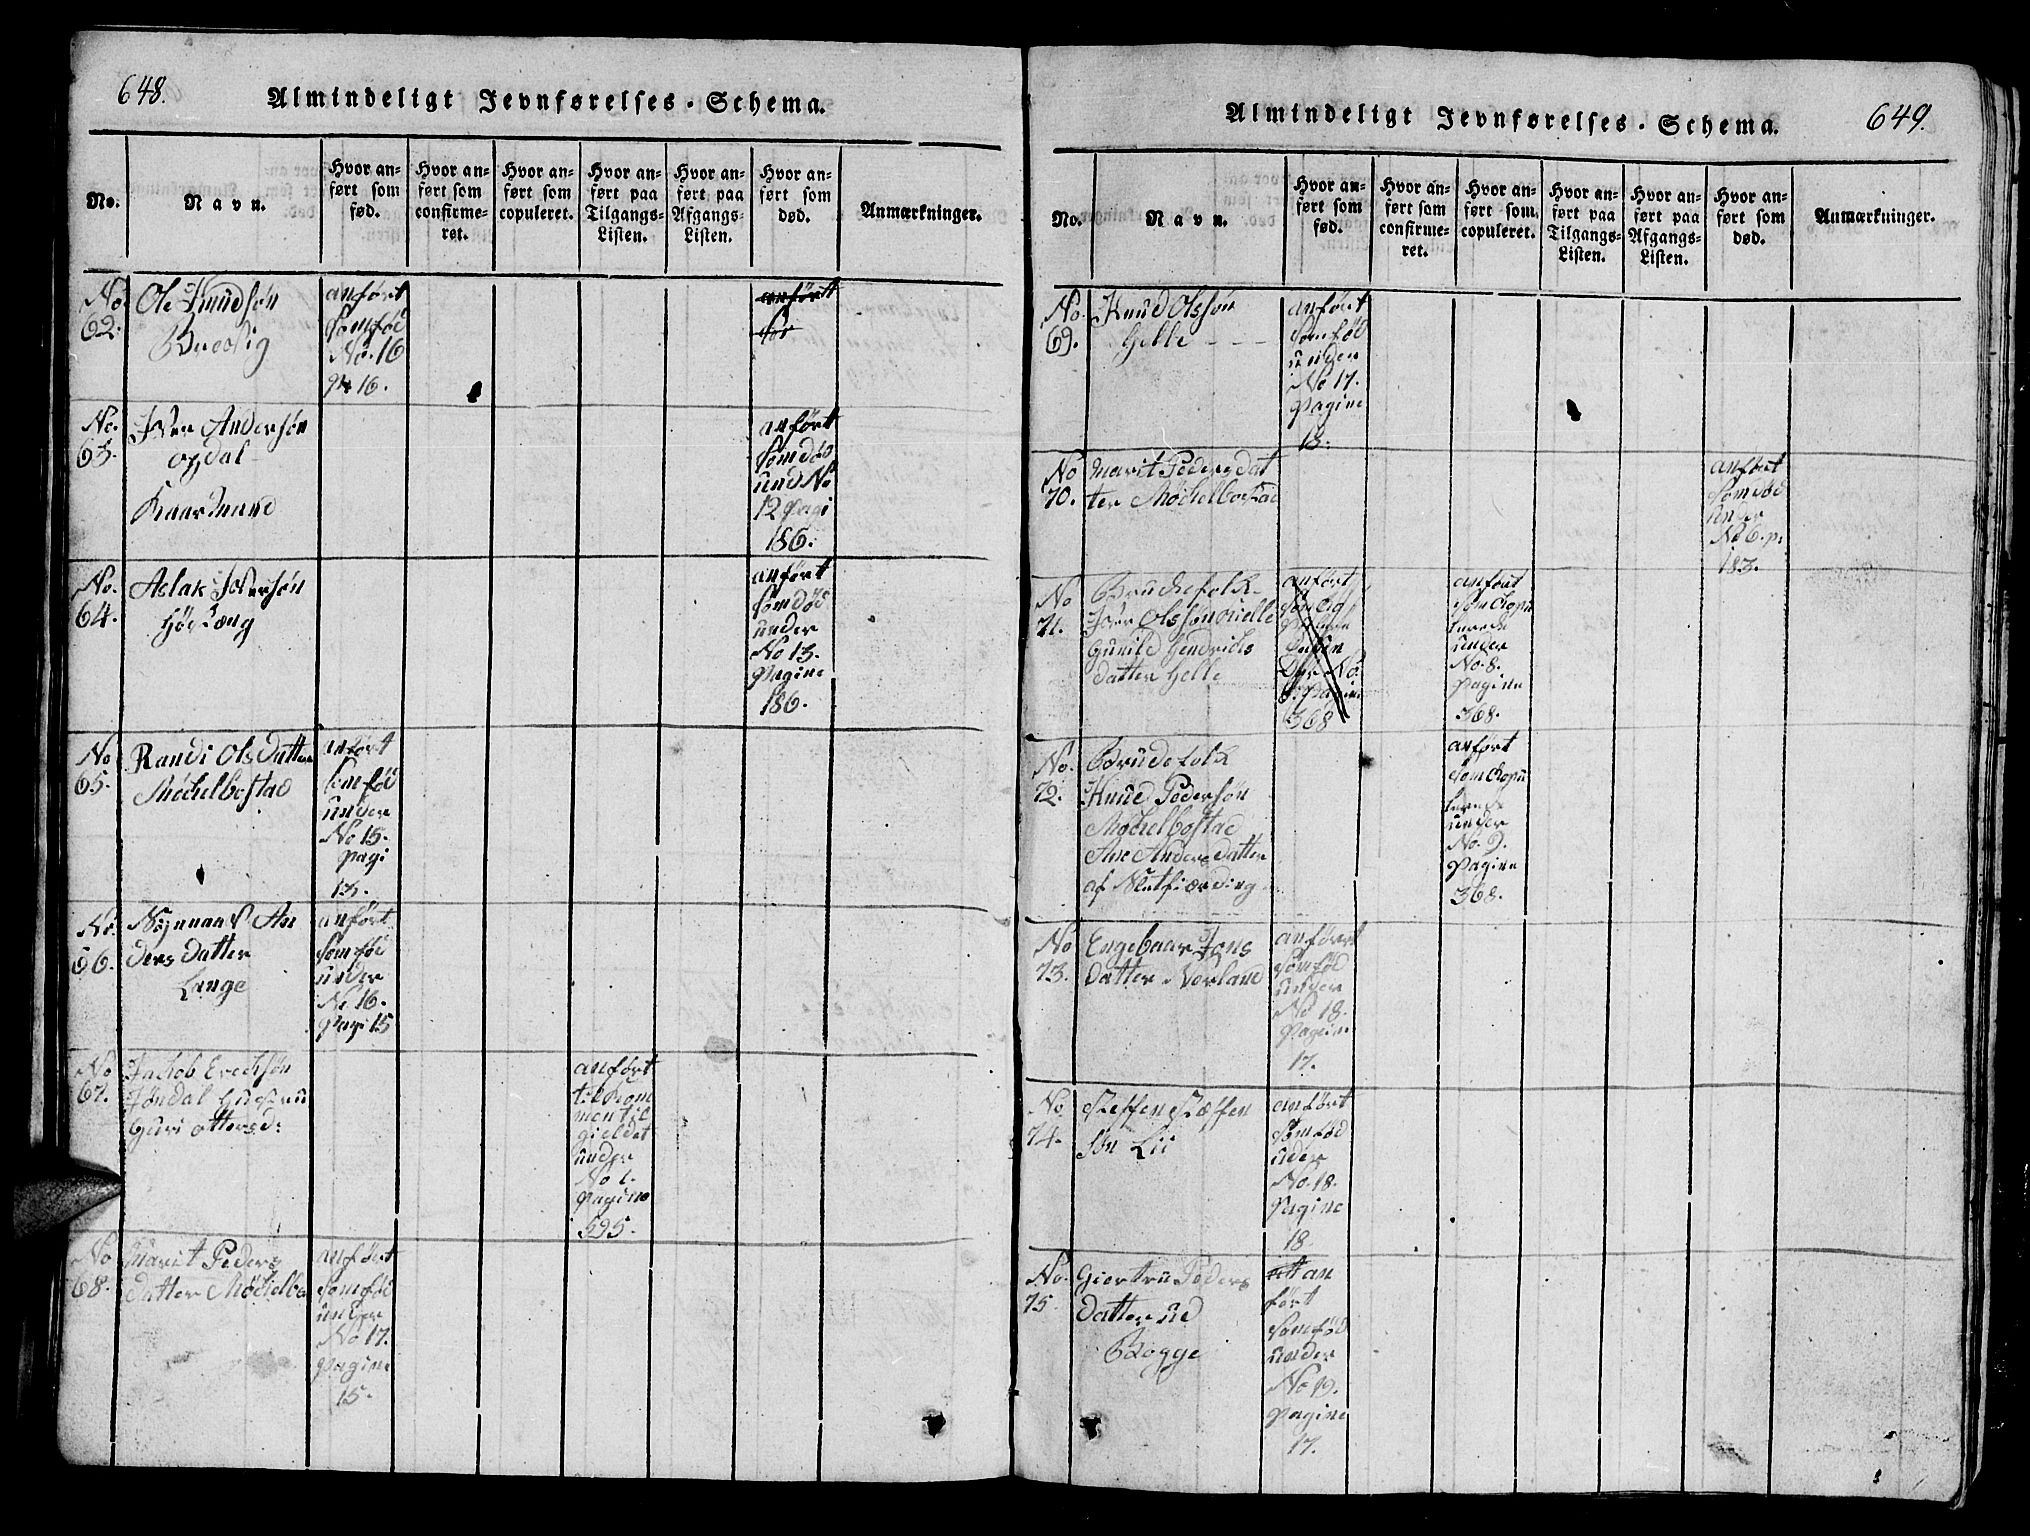 648.
Almindeligt Jevnførelses-Schema.
No.
Navn.
Hvor an-
ført som
fød.
Hvor an-
ført som
confirme-
ret.
Hvor an-
ført som
copuleret.
Hvor an-
ført paa
Tilgangs-
Listen.
Hvor an-
ført paa
Afgangs-
Listen.
Hvor an-
ført som
død.
Anmærkninger.
No
62.
Ole Knudsøn
anført
som fød
No. 16
16.
anført
for
No.
63.
Iver Andersøn
opdal
anført
som død
und No
12 Pagi
186.
No.
64.
Aslak Iversøn
anført
som død
under
No 13.
Pagine
186.
No
65.
Randi Olsdatter
Møckelbostad
anført
som fød
under
No 15.
Pagi
15.
No.
66.
An
ders datter
Lange
anført
som fød
under
No 16.
Pagi 15
No
67.
Jakob Erichsøn
Jøndal Hustru
Guri ottersd:
anført
til kom
men til
gieldet
under
No 1.
Pagine
595.
No
68.
Marit Peders
datter Møckelbo
anført
som fød
under
No 17.
Pagine
15.
649.
Almindeligt Jevnførelses-Schema.
No.
Navn.
Hvor an-
ført som
fød.
Hvor an-
ført som
confirme-
ret.
Hvor an-
ført som
copuleret.
Hvor an-
ført paa
Tilgangs-
Listen.
Hvor an-
ført paa
Afgangs-
Listen.
Hvor an-
ført som
død.
Anmærkninger.
No.
69.
Knud Olssøn
Helle - - -
anført
som fød
under
No 17.
Pagine
No
70.
Marit Peders dat
ter Møckelbostad
anført
som død
under
No 6. p.
183.
No
71.
Brudefolk
Iver Olssøn Helle
Gunild Hendrichs
datter Helle
anført
368
anført
som Copu
lerede
under
No. 8.
Pagine
368.
No.
72.
Brudefolk
Knud Pedersøn
Møckelbostad
Ane Anders datter
af
anført
som Copu
lerede
under
No. 9.
Pagine
368.
No
73.
Engebaar Jons
datter Norland
anført
som fød
under
No 18.
Pagine
17.
No
74.
Steffen Stæffen
søn Lii
anført
som fød
under
No. 18.
Pagine
18
No.
75.
Giertru Peders
datter ud
Bogge
an
ført
som fød
under
No 19.
Pagine
17.